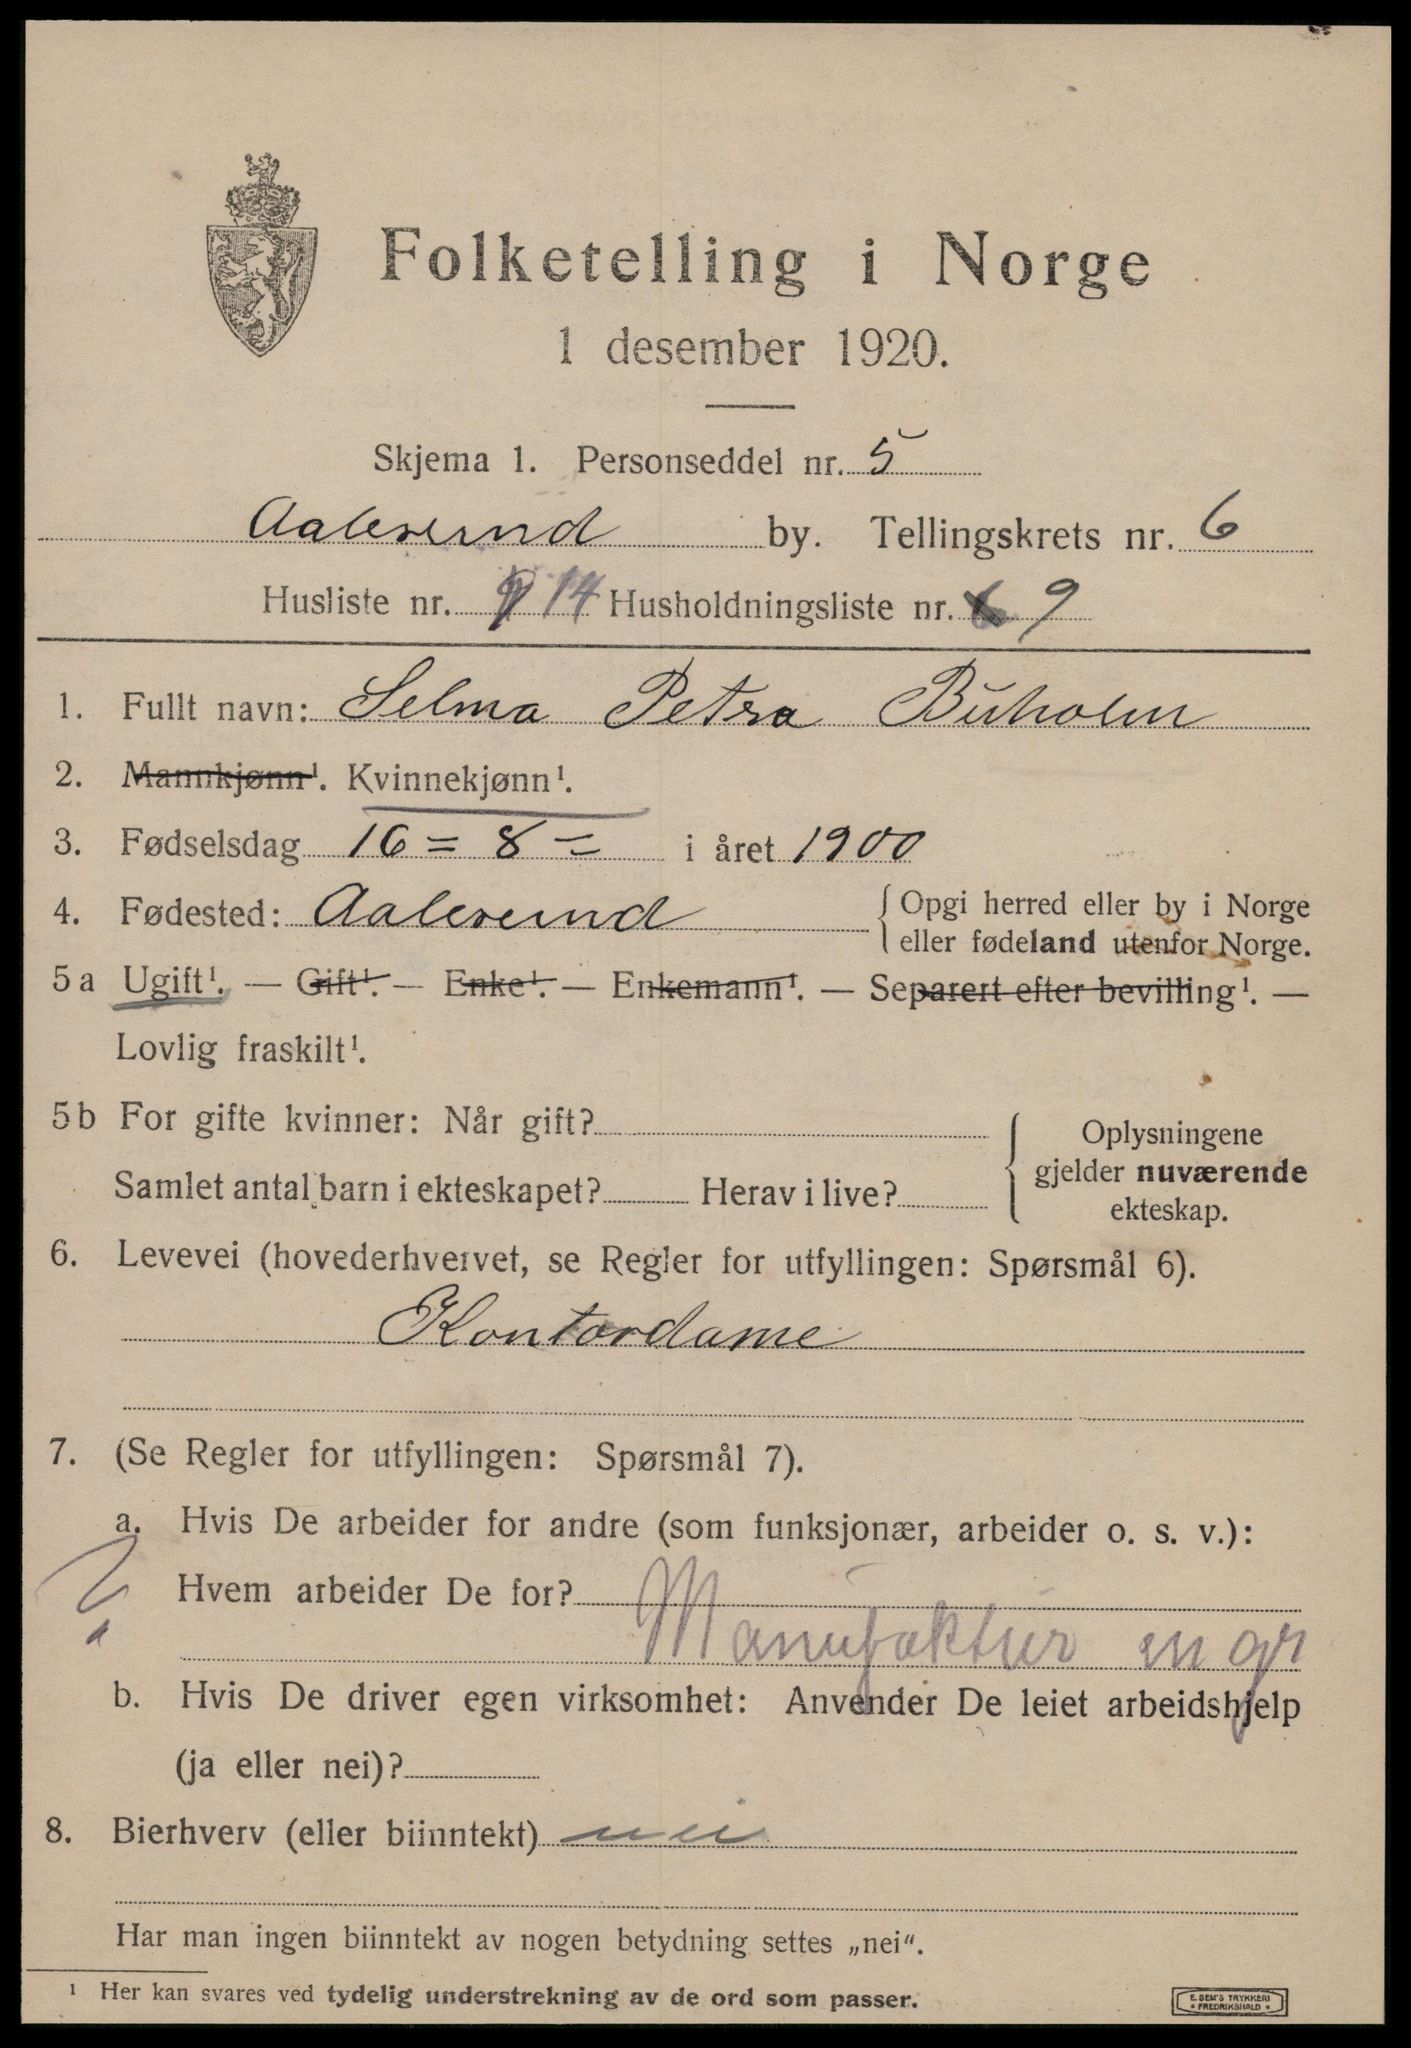 Folketelling i Norge
1 desember 1920.
Skjema 1. Personseddel nr. 5
Aalesund by. Tellingskrets nr. 6
Husliste nr. 14 Husholdningsliste nr. 9
1. Fullt navn: Selma Petra Buholm
2. Mannkjønn¹. Kvinnekjønn¹.
3. Fødselsdag 16 = 8 = i året 1900
4. Fødested: Aalesund { Opgi herred eller by i Norge
eller fødeland utenfor Norge.
5 a Ugift¹. — Gift¹. — Enke¹. — Enkemann¹. — Separert efter bevilling¹. —
Lovlig fraskilt¹.
5 b For gifte kvinner: Når gift?
Samlet antal barn i ekteskapet? Herav i live?
{ Oplysningene
gjelder nuværende
ekteskap.
6. Levevei (hovederhvervet, se Regler for utfyllingen: Spørsmål 6).
Kontordame
7. (Se Regler for utfyllingen: Spørsmål 7).
a. Hvis De arbeider for andre (som funksjonær, arbeider o. s. v.):
? Hvem arbeider De for?
Manufaktur en gr
b. Hvis De driver egen virksomhet: Anvender De leiet arbeidshjelp
(ja eller nei)?
8. Bierhverv (eller biinntekt) nei
Har man ingen biinntekt av nogen betydning settes „nei“.
¹ Her kan svares ved tydelig understrekning av de ord som passer.
E. SEM'S TRYKKERI
• FREDRIKSHALD •